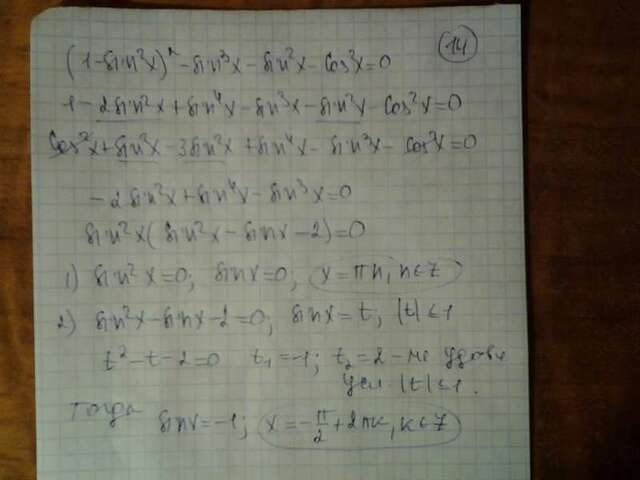 14
(1-sin²x)² - sin³x - sin²x - cos²x=0
1 - 2sin²x + sin⁴x - sin³x - sin²x - cos²x=0
cos²x + sin²x - 3sin²x + sin⁴x - sin³x - cos²x=0
-2sin²x + sin⁴x - sin³x=0
sin²x(sin²x - sinx - 2)=0
1) sin²x=0; sinx=0; x=πn, n∈Z
2) sin²x - sinx - 2=0; sinx=t; |t|≤1
t² - t - 2=0 t₁=-1; t₂=2 - не удовл
усл. |t|≤1.
тогда
sinx=-1; x=-π/2+2πk, k∈Z